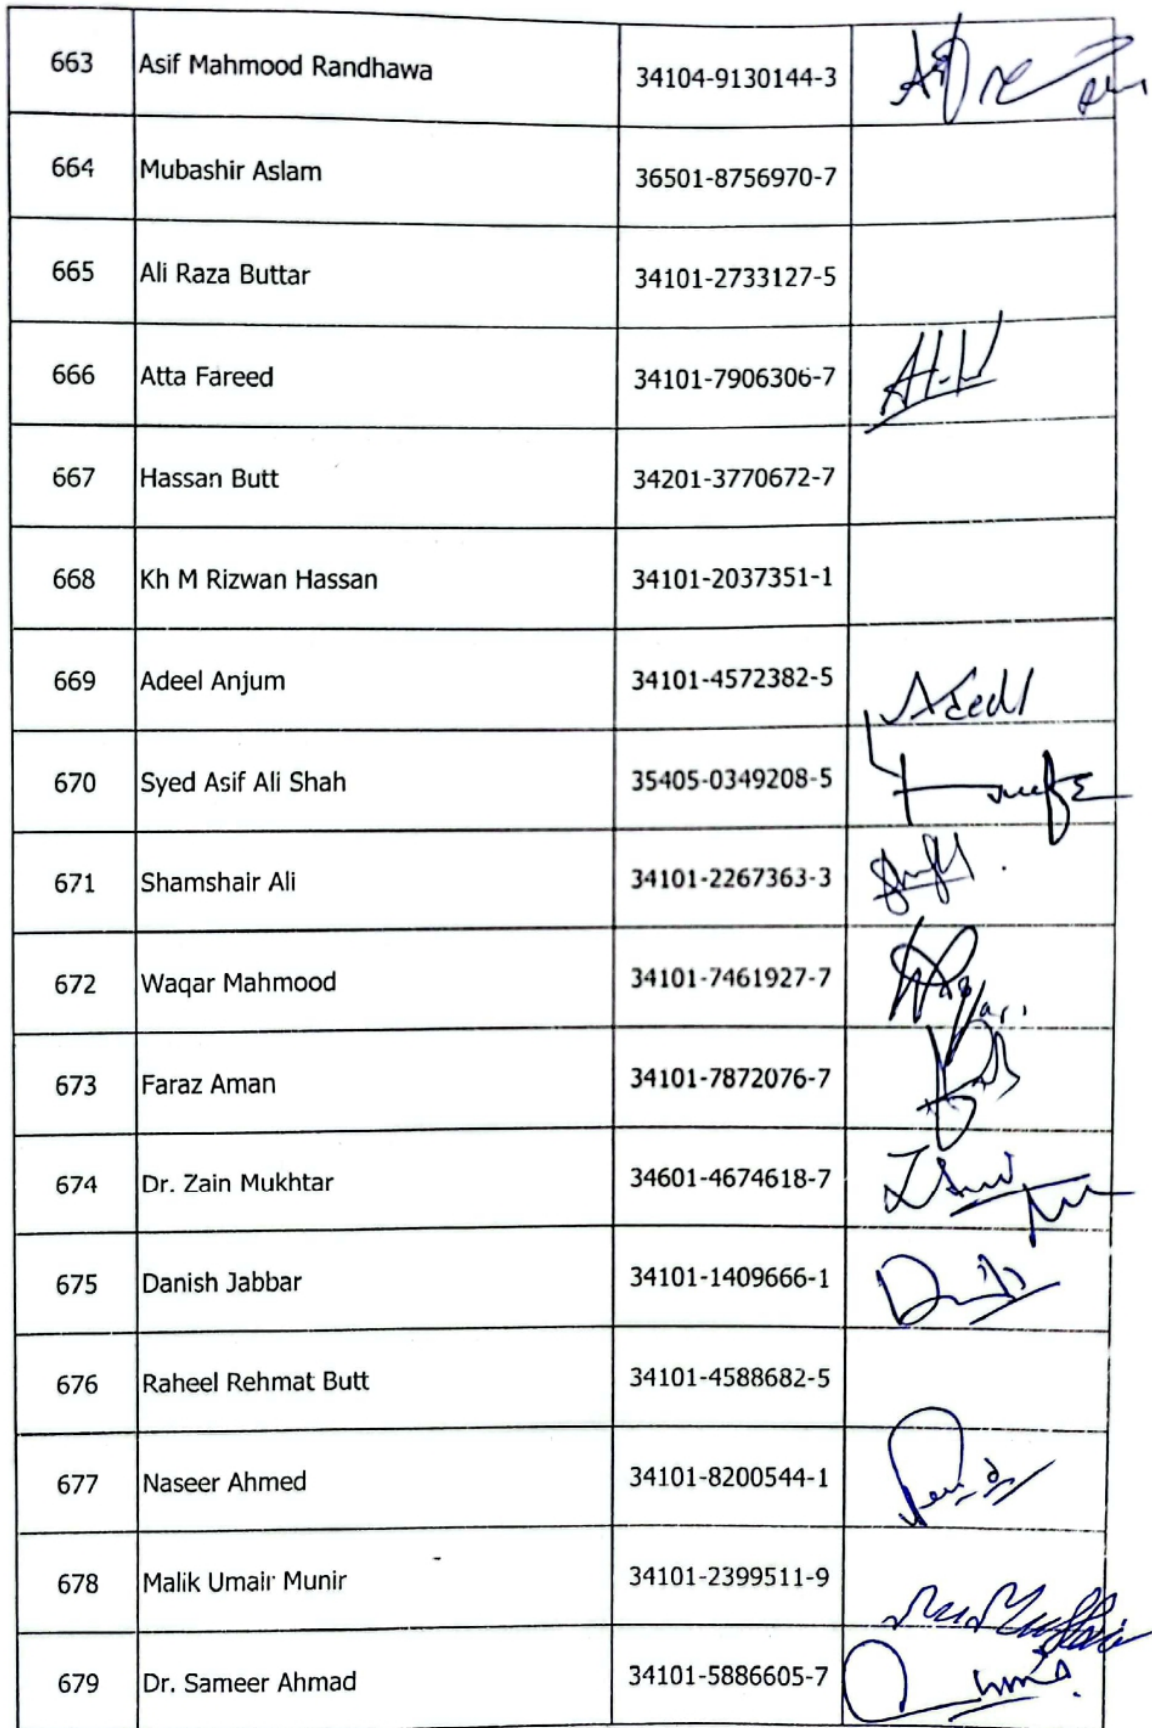 663 Asif Mahmood Randhawa 34104-9130144-3
664 Mubashir Aslam 36501-8756970-7
665 Ali Raza Buttar 34101-2733127-5
666 Atta Fareed 34101-7906306-7
667 Hassan Butt 34201-3770672-7
668 Kh M Rizwan Hassan 34101-2037351-1
669 Adeel Anjum 34101-4572382-5
670 Syed Asif Ali Shah 35405-0349208-5
671 Shamshair Ali 34101-2267363-3
672 Waqar Mahmood 34101-7461927-7
673 Faraz Aman 34101-7872076-7
674 Dr. Zain Mukhtar 34601-4674618-7
675 Danish Jabbar 34101-1409666-1
676 Raheel Rehmat Butt 34101-4588682-5
677 Naseer Ahmed 34101-8200544-1
678 Malik Umair Munir 34101-2399511-9
679 Dr. Sameer Ahmad 34101-5886605-7